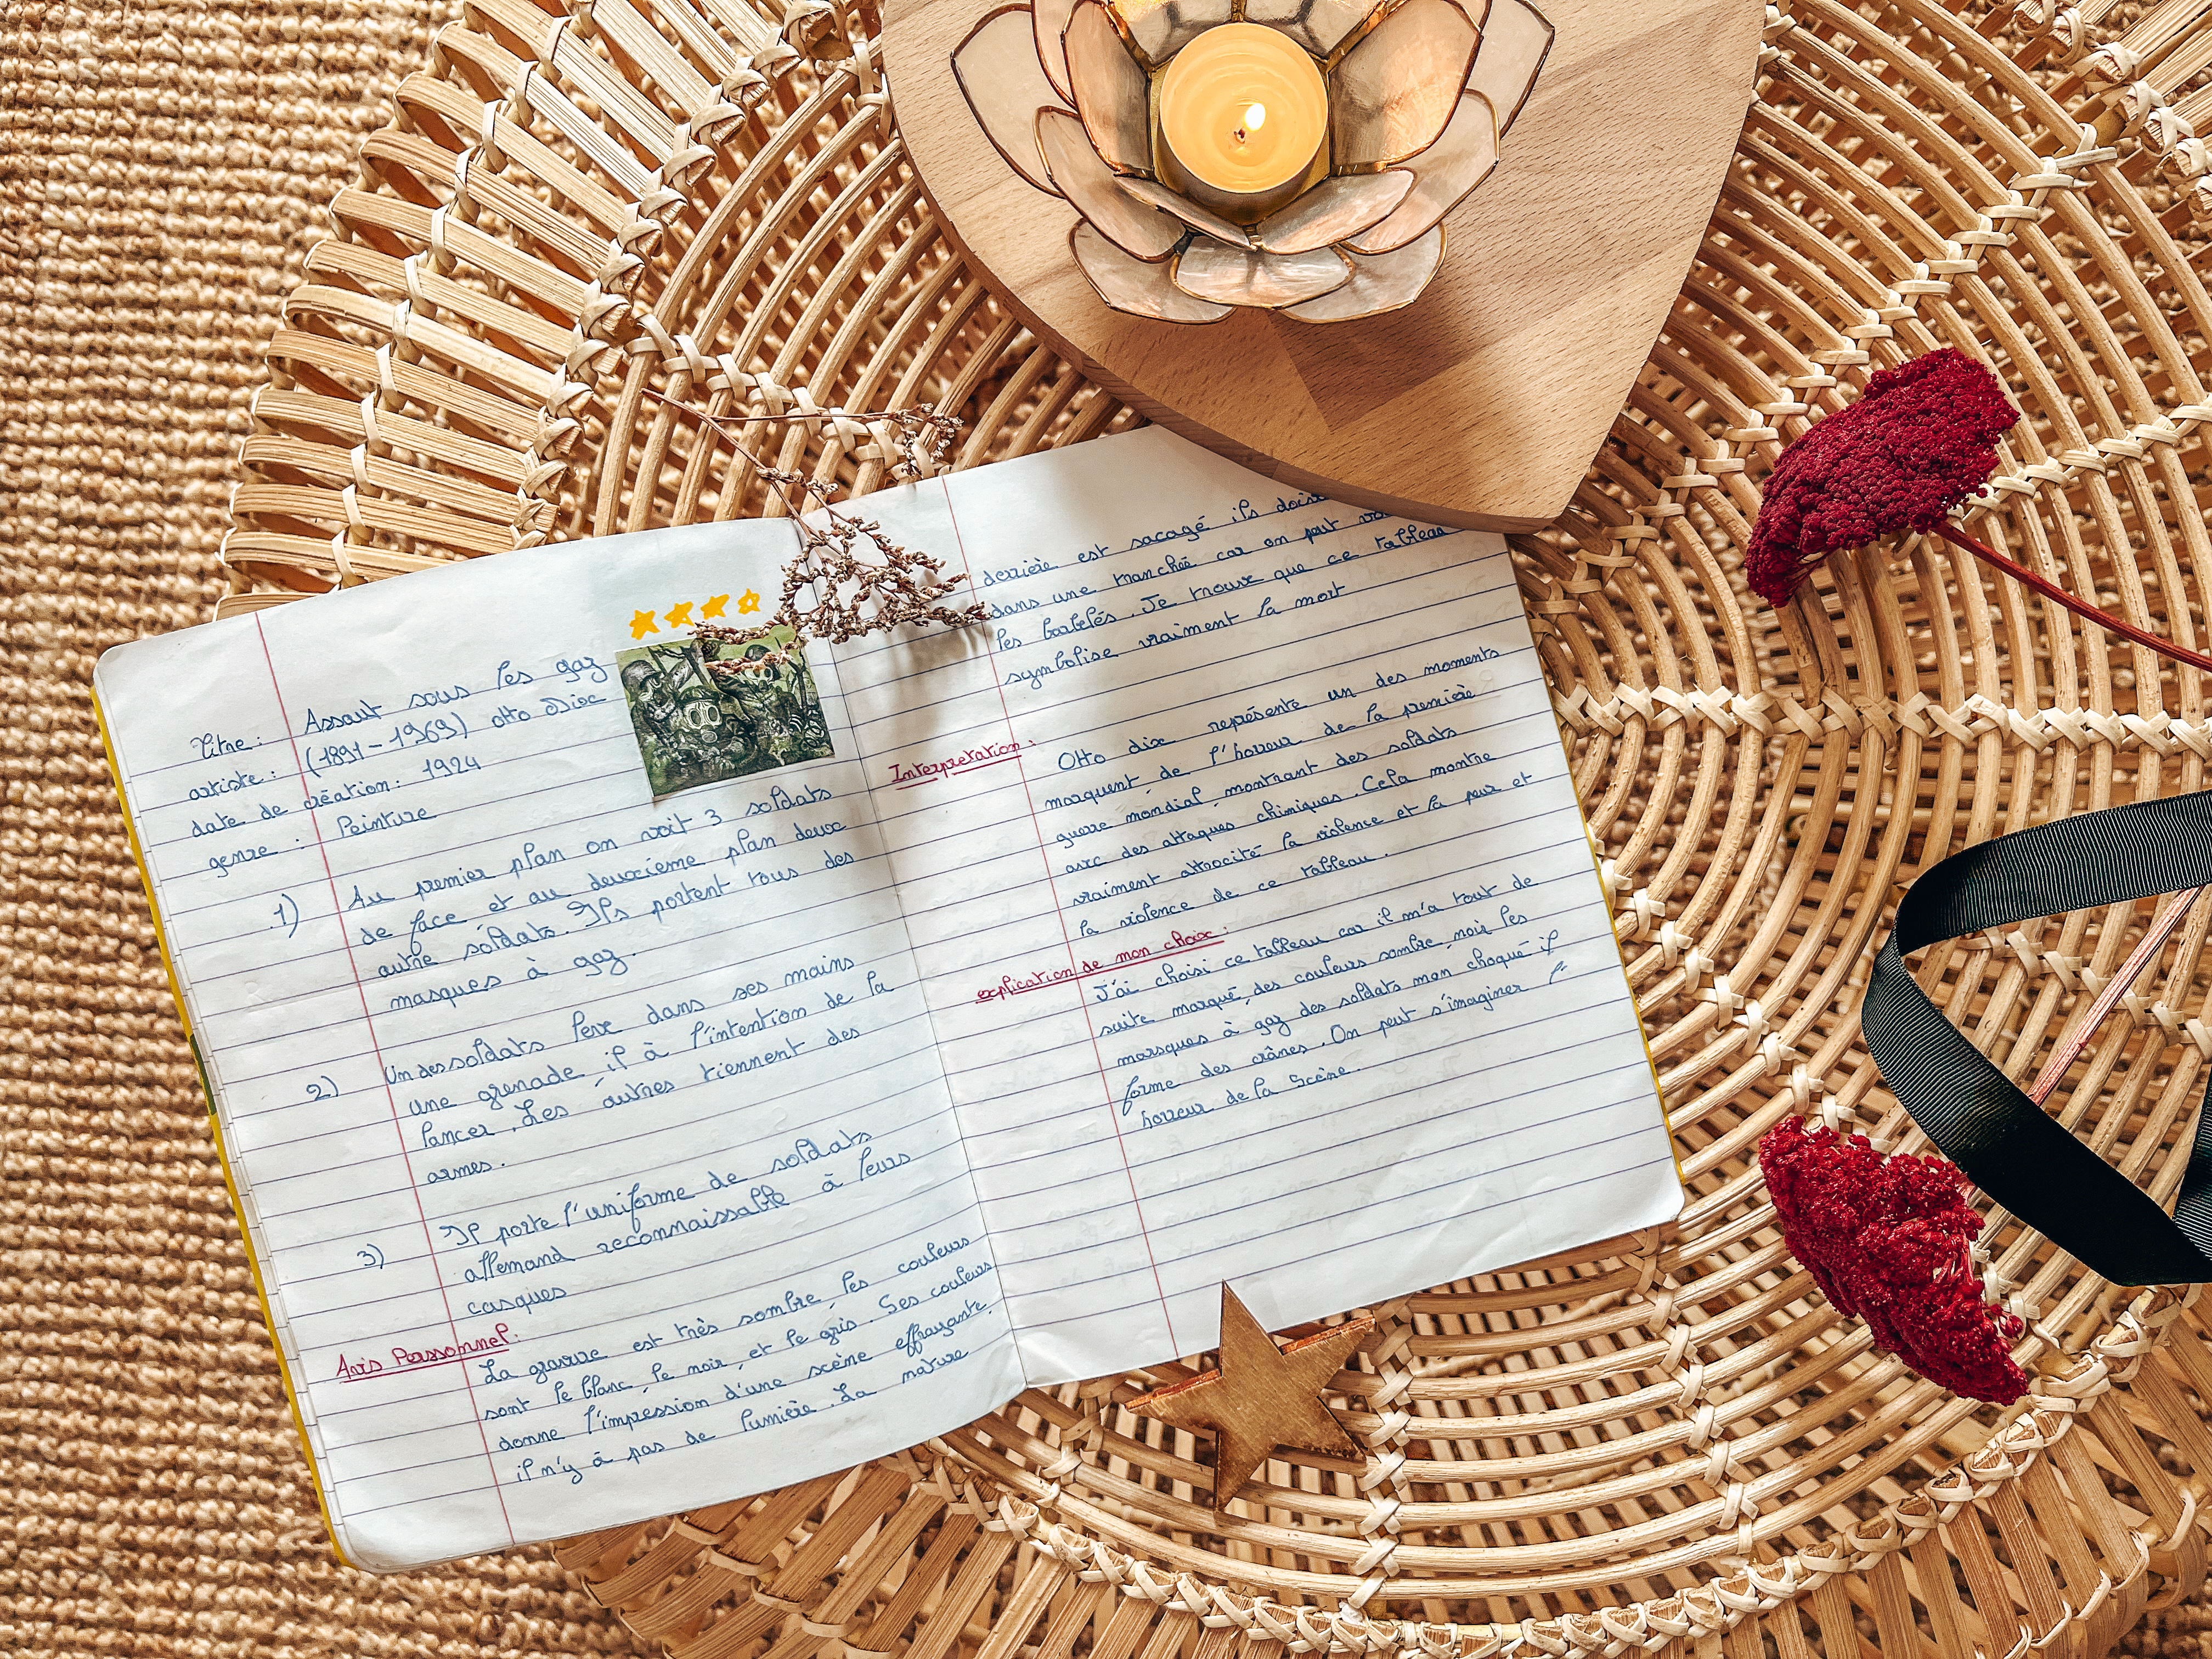 Titre : Assaut sous les gaz
artiste : (1891-1969) Otto Dixe
date de création : 1924
genre : Peinture
1) Au premier plan on voit 3 soldats
de face et au deuxième plan deux
autre soldats. Ils portent tous des
masques à gaz.
2) Un des soldats lève dans ses mains
une grenade, il à l'intention de la
lancer. Les autres tiennent des
armes.
3) Il porte l'uniforme de soldats
allemand reconnaissable à leurs
casques
Avis Personnel :
La gravure est très sombre, les couleurs
sont le blanc, le noir, et le gris. Ses couleurs
donne l'impression d'une scène effrayante,
il n'y à pas de lumière. La nature
derrière est sacagé ils
dans une tranchée car on peut
les barbelés. Je trouve que ce tableau
symbolise vraiment la mort
Interpretation :
Otto dix représente un des moments
marquent, de l'horreur de la première
guerre mondial, montrant des soldats
avec des attaques chimiques. Cela montre
vraiment attrocité la violence et la peur et
la violence de ce tableau.
explication de mon choix :
J'ai choisi ce tableau car il m'a tout de
suite marqué, des couleurs sombre, noir les
marsques à gaz des soldats mon choqué il
forme des crânes. On peut s'imaginer l'
horreur de la scène.